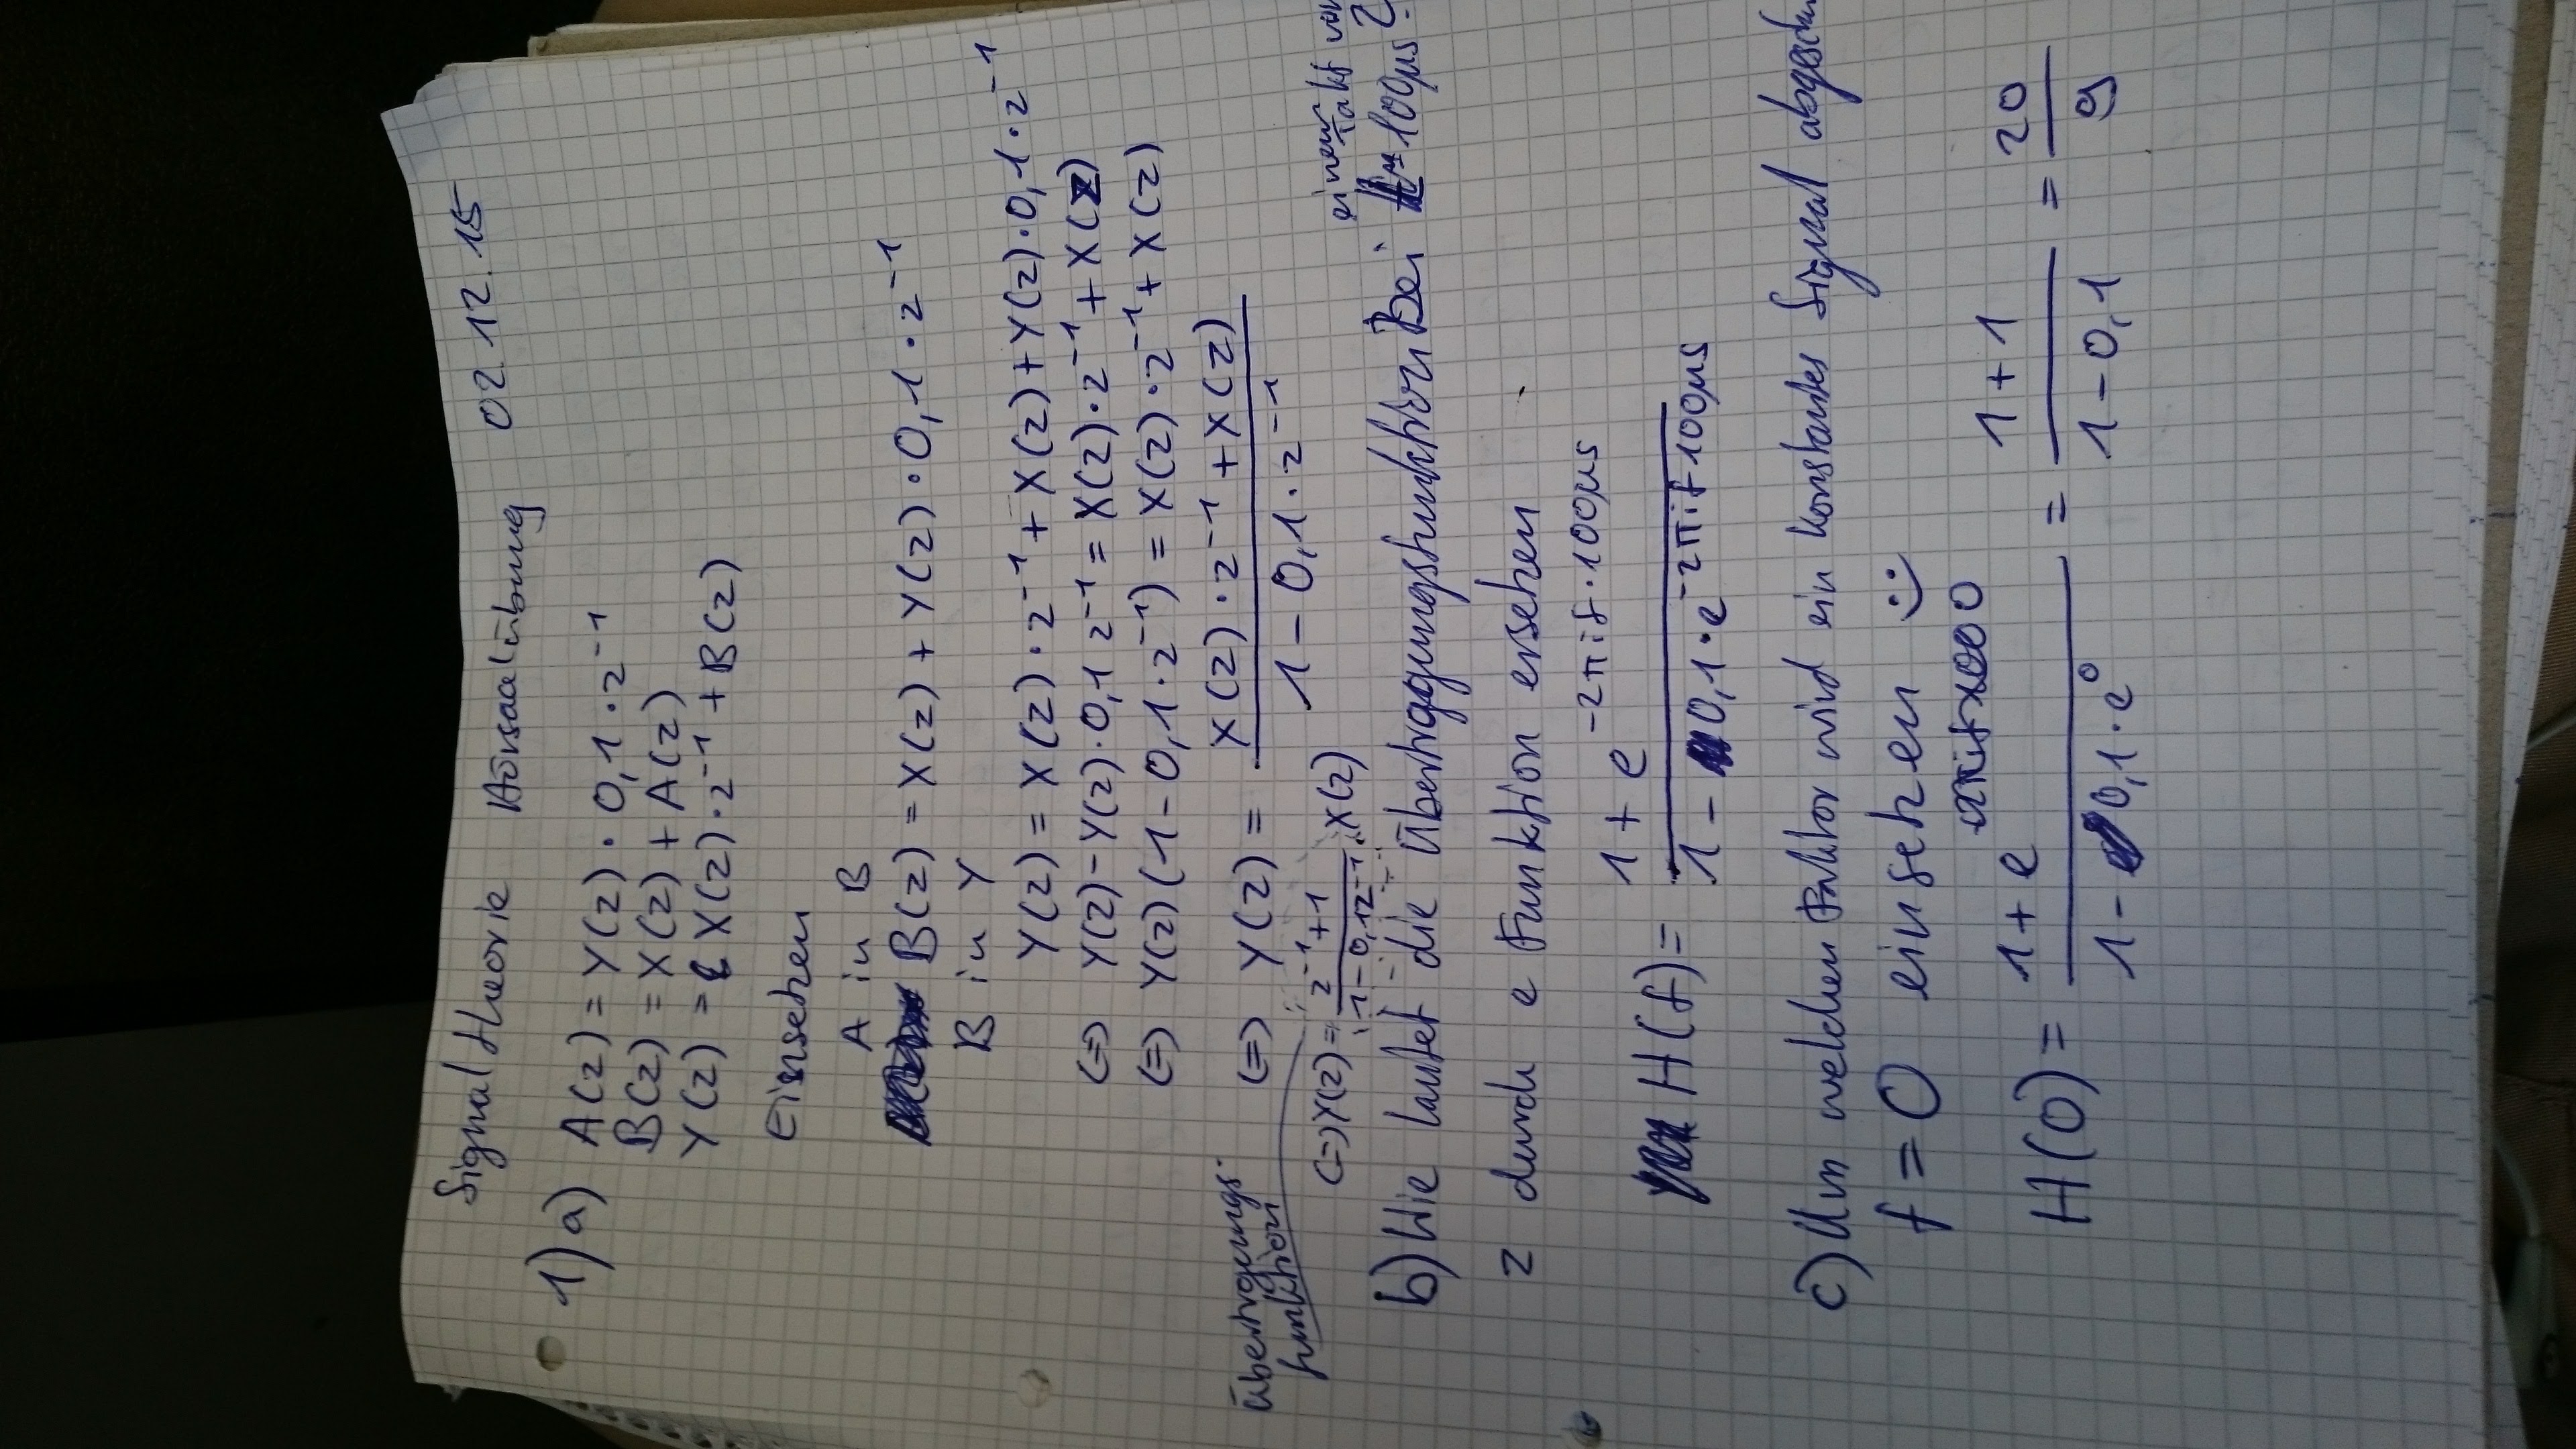 Signal theorie Hörsaalübung 02.12.15
1) a) A(z) = Y(z) · 0,1 · z⁻¹
B(z) = X(z) + A(z)
Y(z) = X(z) · z⁻¹ + B(z)
Einsetzen
A in B
B(z) = X(z) + Y(z) · 0,1 · z⁻¹
B in Y
Y(z) = X(z) · z⁻¹ + X(z) + Y(z) · 0,1 · z⁻¹
(=) Y(z) - Y(z) · 0,1 z⁻¹ = X(z) · z⁻¹ + X(z)
(=) Y(z) (1 - 0,1 · z⁻¹) = X(z) · z⁻¹ + X(z)
(=) Y(z) = X(z) · z⁻¹ + X(z) / 1 - 0,1 · z⁻¹
Übertragungs
funktion
(=) Y(z) = z⁻¹ + 1 / 1 - 0,1z⁻¹ · X(z)
einem Takt von
b) Wie lautet die Übertragungsfunktion Bei 100µs ?
z durch e Funktion ersetzen
H(f) = 1 + e^(-2πif · 100µs) / 1 - 0,1 · e^(-2πif · 100µs)
c) Um welchen Faktor wird ein konstantes Signal
f = 0 einsetzen :)
H(0) = 1 + e⁰ / 1 - 0,1 · e⁰ = 1 + 1 / 1 - 0,1 = 20 / 9